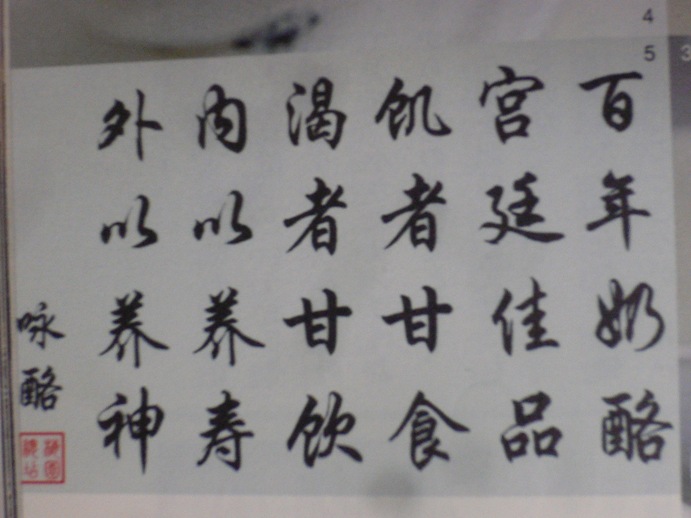 百年奶酪
宫廷佳品
饥者甘食
渴者甘饮
内以养寿
外以养神
咏酪
4
5
3